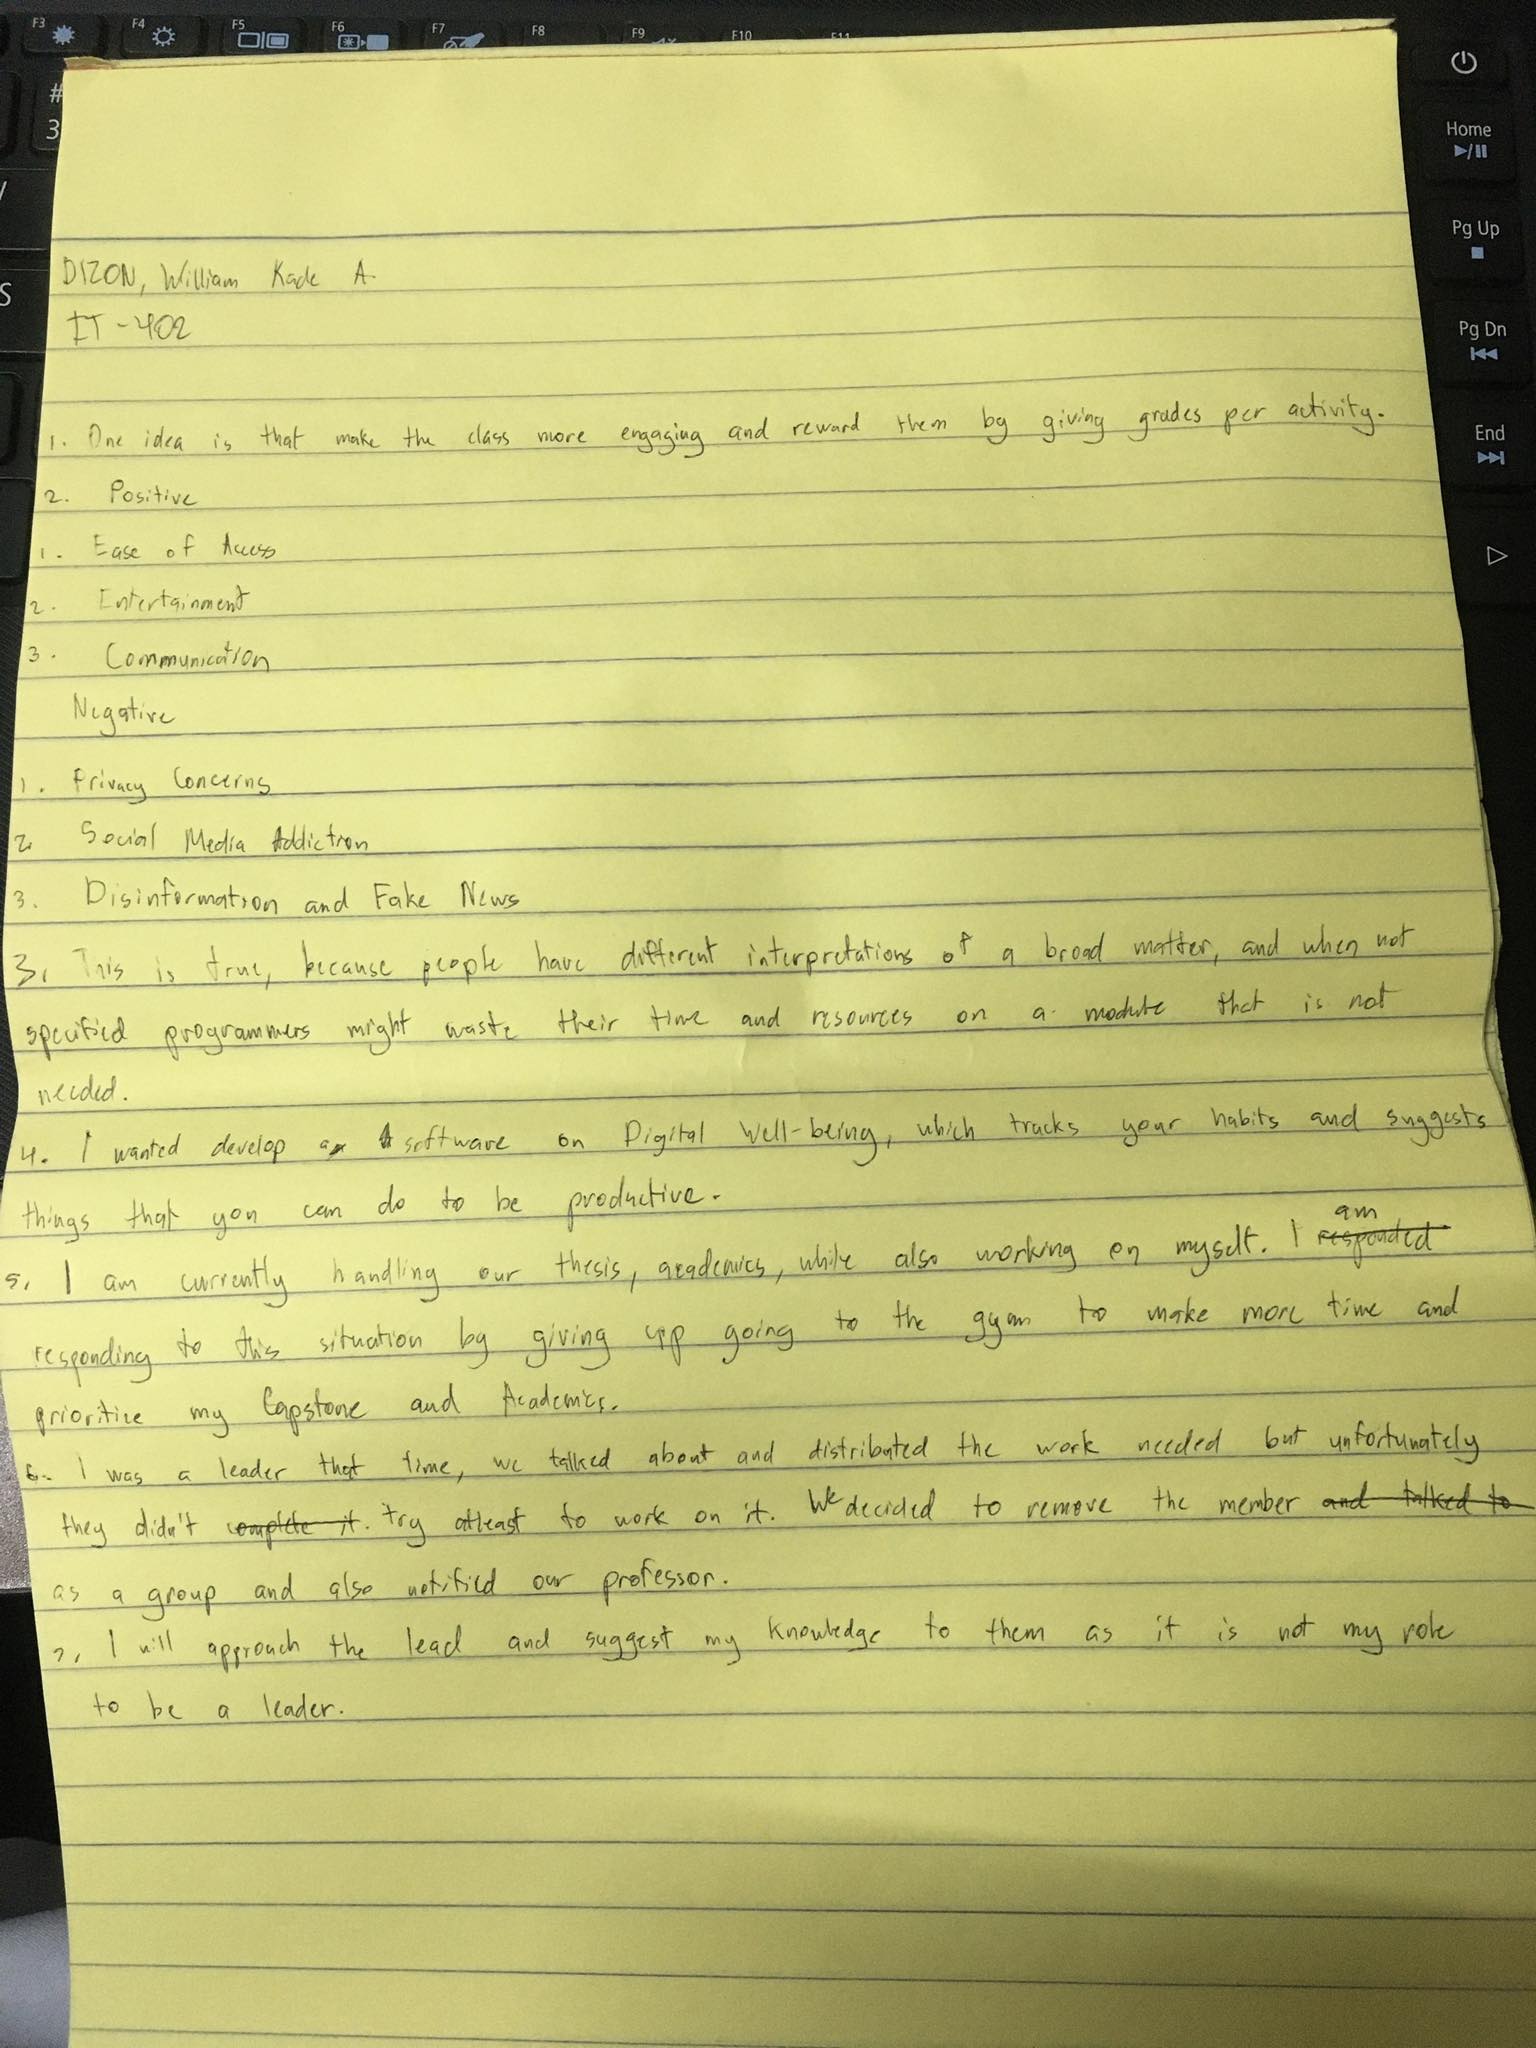 DIZON, William Kade A.
IT-402
1. One idea is that make the class more engaging and reward them by giving grades per activity.
2. Positive
1. Ease of Access
2. Entertainment
3. Communication
Negative
1. Privacy Concerns
2. Social Media Addiction
3. Disinformation and Fake News
3. This is true, because people have different interpretations of a broad matter, and when not
specified programmers might waste their time and resources on a module that is not
needed.
4. I wanted develop a software on Digital Well-being, which tracks your habits and suggests
things that you can do to be productive.
am
5. I am currently handling our thesis, academics, while also working on myself. I responded
responding to this situation by giving up going to the gym to make more time and
prioritize my Capstone and Academics.
6. I was a leader that time, we talked about and distributed the work needed but unfortunately
they didn't complete it. try atleast to work on it. We decided to remove the member and talked to
as a group and also notified our professor.
7. I will approach the lead and suggest my knowledge to them as it is not my role
to be a leader.
F3 F4 F5 F6 F7 F8 F9 F10 F11
#
3
S
Home
Pg Up
Pg Dn
End